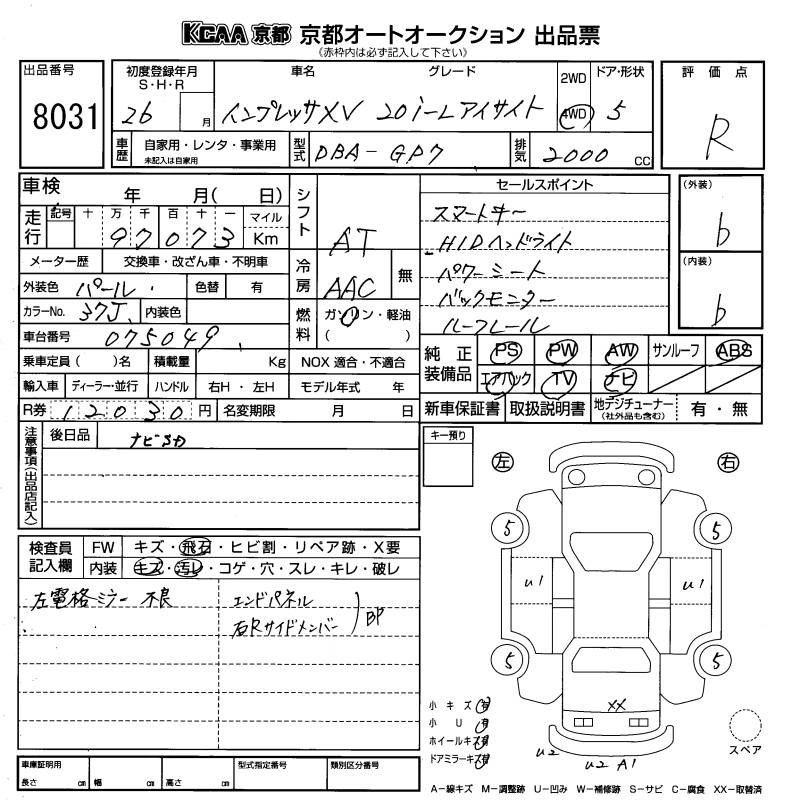 KCAA 京都 京都オートオークション 出品票
《赤枠内は必ず記入して下さい》
出品番号
8031
初度登録年月
S・H・R
26
月
車名
グレード
インプレッサXV 20i-Lアイサイト
2WD
4WD
ドア・形状
5
評価点
R
車歴
自家用・レンタ・事業用
未記入は自家用
型式
DBA-GP7
排気
2000 CC
車検
年 月( 日)
走行
記号 十 万 千 百 十 一
97073
マイル
Km
メーター歴
交換車・改ざん車・不明車
外装色
パール
色替
有
カラーNo.
37J
内装色
車台番号
075049
乗車定員( )名
積載量
Kg
輸入車
ディーラー・並行
ハンドル
右H・左H
R券
12030円
名変期限
月 日
シフト
AT
冷房
AAC
無
燃料
ガソリン・軽油
( )
NOX 適合・不適合
モデル年式 年
セールスポイント
スマートキー
HIDヘッドライト
パワーシート
バックモニター
ルーフレール
(外装)
b
(内装)
b
純正装備品
PS
PW
AW
サンルーフ
ABS
エアバック
TV
ナビ
新車保証書
取扱説明書
地デジチューナー
(社外品も含む)
有・無
注意事項(出品店記入)
後日品
キー預り
左
右
検査員記入欄
FW
キズ・飛石・ヒビ割・リペア跡・X要
内装
キズ・汚レ・コゲ・穴・スレ・キレ・破レ
左電格ミラー 不良
エンドパネル
右Rサイドメンバー
BP
5
5
U1
U1
5
5
XX
U2
U2 A1
小キズ 有
小U 有
ホイールキズ 有
ドアミラーキズ 有
スペア
車庫証明用
長さ cm
幅 cm
高さ cm
型式指定番号
類別区分番号
A-線キズ M-調整跡 U-凹み W-補修跡 S-サビ C-腐食 XX-取替済